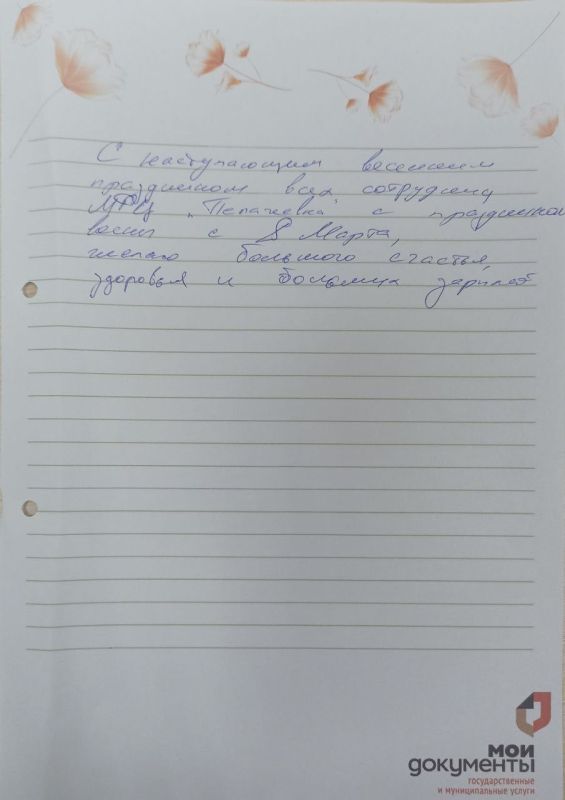 С наступающим весенним
праздником всех сотрудниц
МФЦ с праздником
весны с 8 Марта,
желаю большого счастья,
здоровья и больших зарплат
мои
документы
государственные
и муниципальные услуги